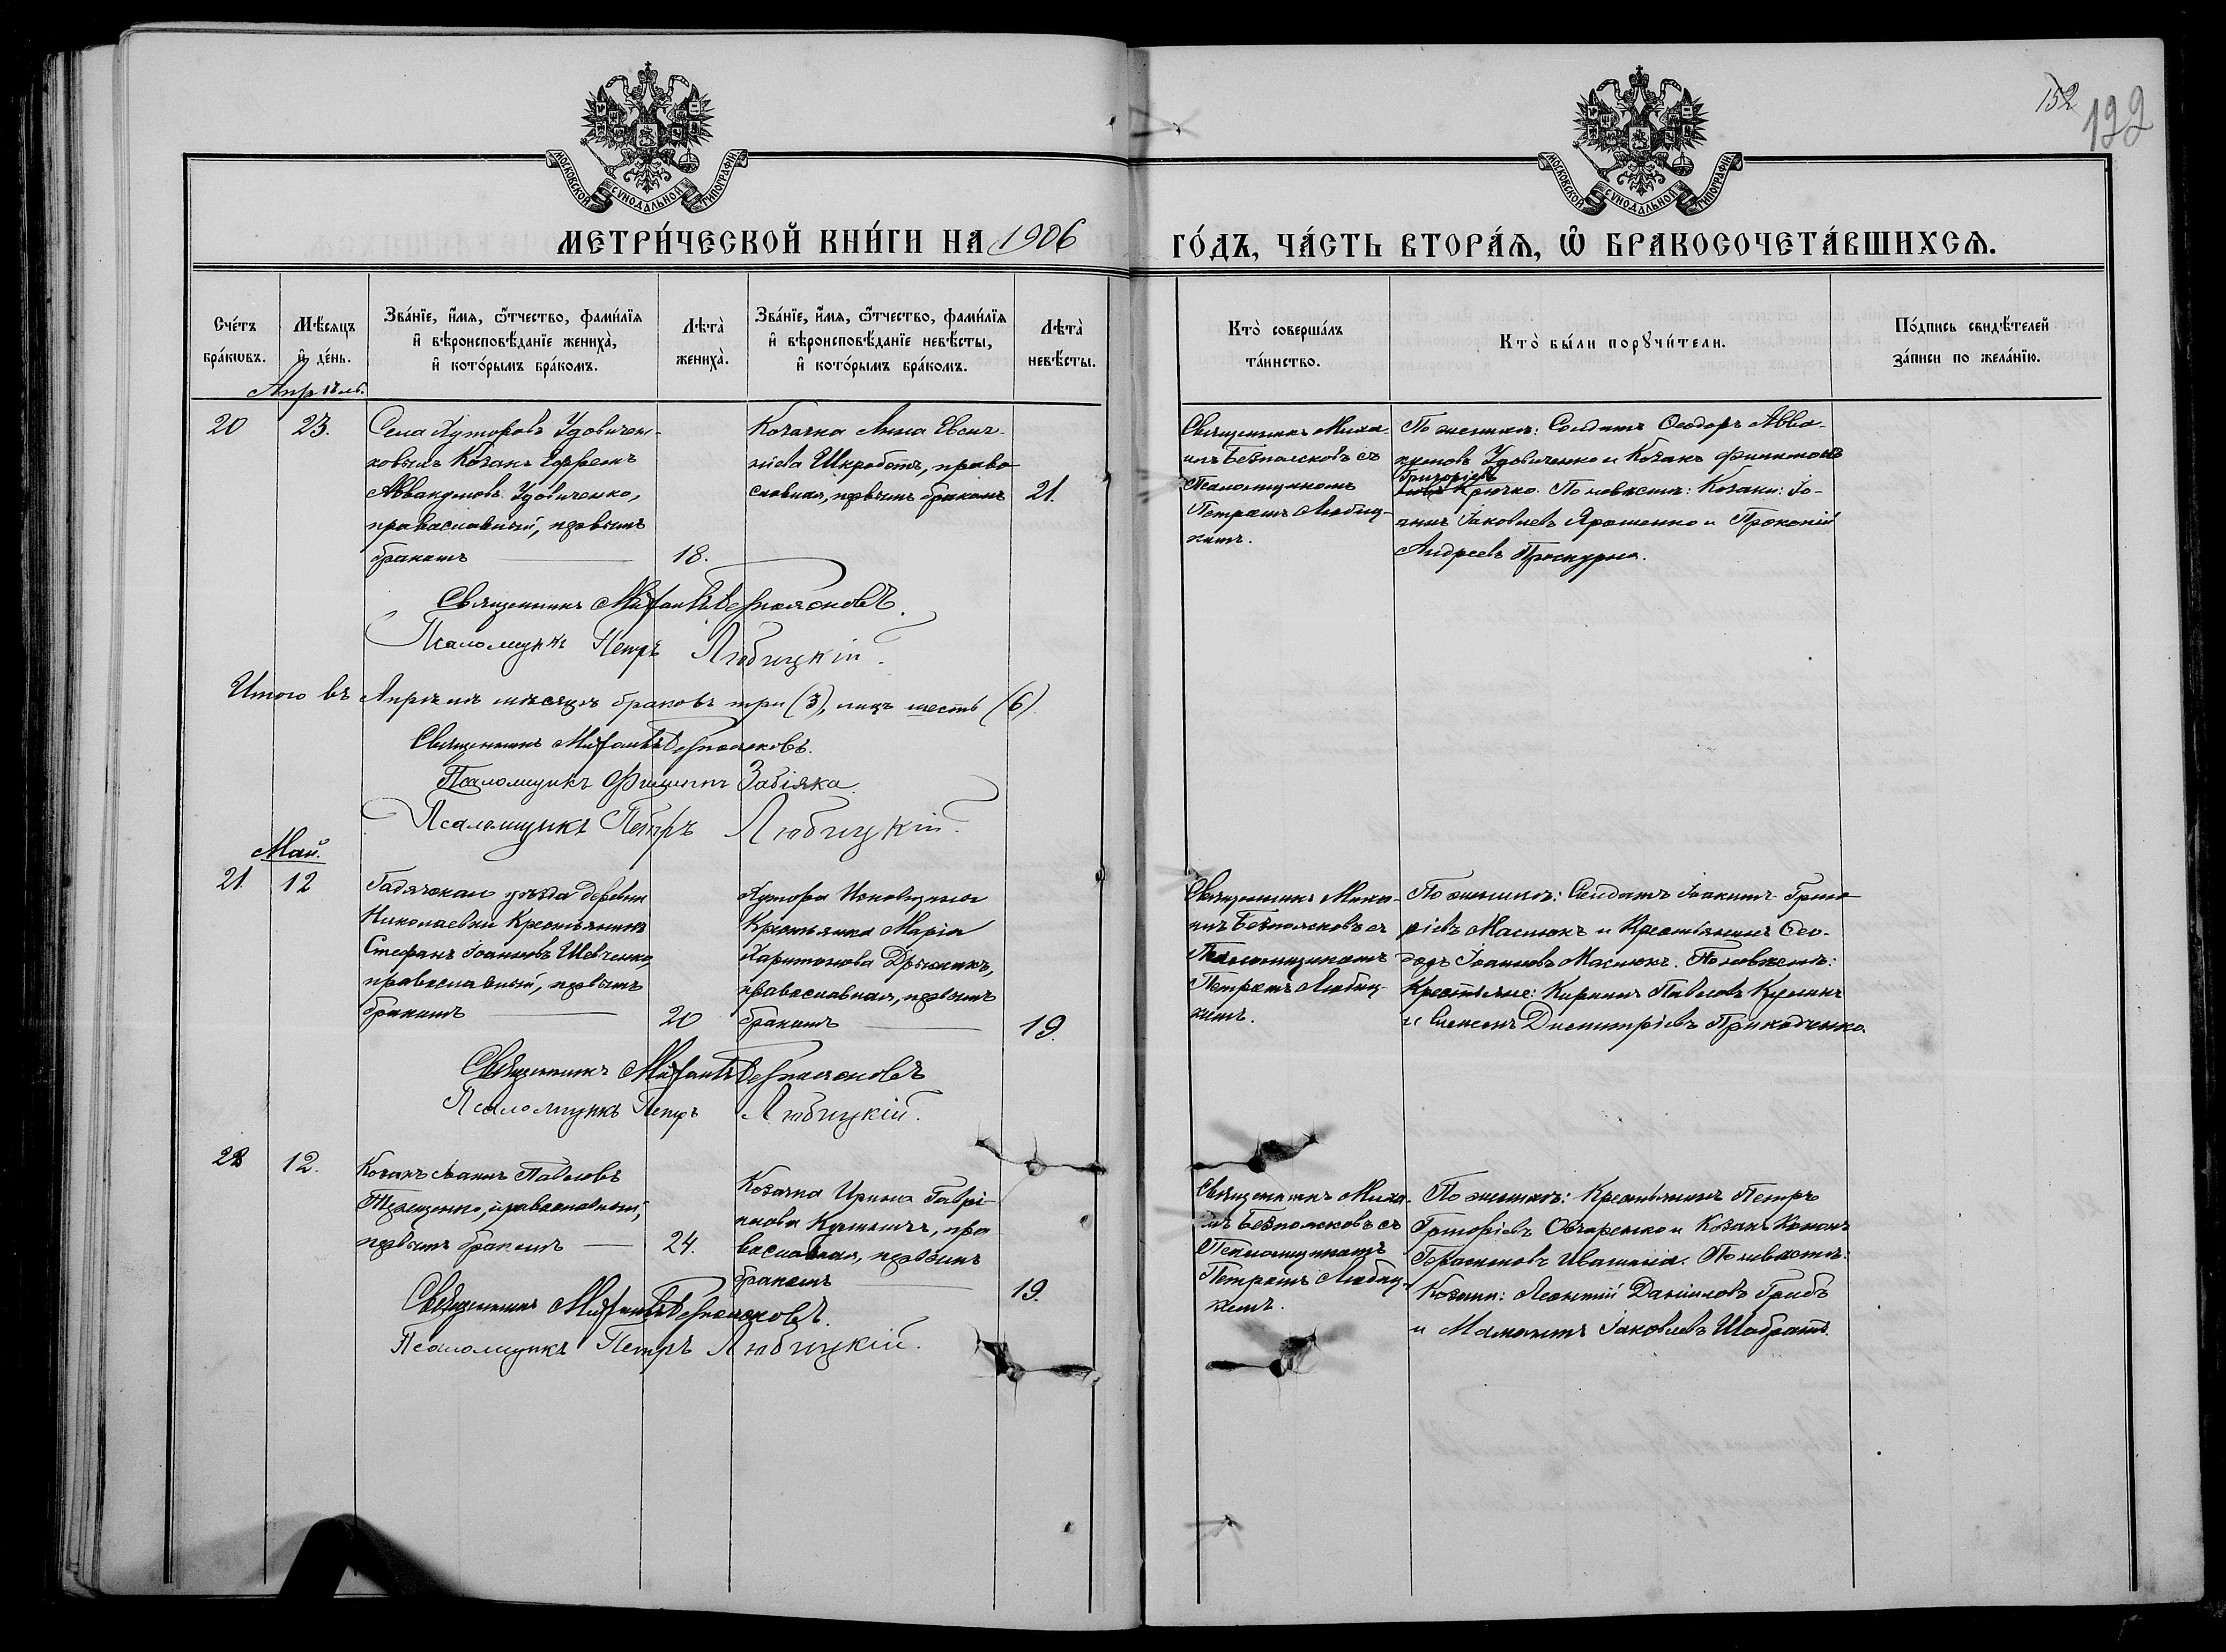 152
122
МОСКОВСКОЙ СѴНОДАЛЬНОЙ ТИПОГРАФІИ
МОСКОВСКОЙ СѴНОДАЛЬНОЙ ТИПОГРАФІИ
МЕТРИ́ЧЕСКОЙ КНИ́ГИ НА 1906
ГО́ДЪ, ЧА́СТЬ ВТОРА́Ѧ, Ѡ҆ БРАКОСОЧЕТА́ВШИХСѦ.
Сче́тъ
бра́кѡвъ.
Мѣ́сяцъ
и҆ де́нь.
Зва́нїе, и҆́мя, ѻ҆́тчество, фами́лїя
и҆ вѣроисповѣ́данїе жениха̀,
и҆ кото́рымъ бра́комъ.
Лѣта̀
жениха̀.
Зва́нїе, и҆́мя, ѻ҆́тчество, фами́лїя
и҆ вѣроисповѣ́данїе невѣ́сты,
и҆ кото́рымъ бра́комъ.
Лѣта̀
невѣ́сты.
Кто̀ соверша́лъ
та́инство.
Кто̀ бы́ли порꙋчи́тели.
По́дпись свидѣ́телей
за́писи по жела́нїю.
Апрѣль.
20
23.
Села Хуторовъ Удовичен-
ковыхъ Козакъ Ефремъ
Аввакумовъ Удовиченко,
православный, первымъ
бракомъ
18.
Козачка Анна Евсиг-
ніева Шкроботъ, право
славная, первымъ бракомъ
21.
Священникъ Миха-
илъ Безпоясковъ съ
Псаломщикомъ
Петромъ Любиц-
кимъ.
По женихѣ: Солдатъ Ѳеодоръ Авва-
кумовъ Удовиченко и Козакъ
Григоріевъ
Крючко. По невѣстѣ: Козаки: Іо-
аннъ Іаковлевъ Ярошенко и Прокопій
Андреевъ Проскурня.
Священникъ Михаилъ Безпоясковъ.
Псаломщикъ Петръ Любицкій.
Итого въ Апрѣлѣ мѣсяцѣ браковъ три (3), лицъ шесть (6).
Священникъ Михаилъ Безпоясковъ.
Псаломщикъ Филиппъ Забіяка.
Псаломщикъ Петръ Любицкій.
Май.
21
12
Гадячскаго уѣзда деревни
Николаевки Крестьянинъ
Стефанъ Іоанновъ Шевченко,
православный, первымъ
бракомъ
20
Хутора
Крестьянка Марія
Харитонова
православная, первымъ
бракомъ
19.
Священникъ Миха-
илъ Безпоясковъ съ
Псаломщикомъ
Петромъ Любиц-
кимъ.
По женихѣ: Солдатъ Іоакимъ Григо
ріевъ Маслюкъ и Крестьянинъ Ѳео-
доръ Іоанновъ Маслюкъ. По невѣстѣ:
Крестьяне: Кириллъ Павловъ
и Симеонъ Димитріевъ Приходченко.
Священникъ Михаилъ Безпоясковъ
Псаломщикъ Петръ Любицкій.
22
12.
Козакъ Іоаннъ Павловъ
Терещенко, православный,
первымъ бракомъ
24.
Козачка Ирина Гаврі-
илова, пра
вославная, первымъ
бракомъ
19.
Священникъ Миха-
илъ Безпоясковъ съ
Псаломщикомъ
Петромъ Любиц-
кимъ.
По женихѣ: Крестьянинъ Петръ
Григоріевъ Овчаренко и Козакъ Кононъ
Герасимовъ Ивашина. По невѣстѣ:
Козаки: Леонтій Даніиловъ Грибъ
и Мамантъ Іаковлевъ Шабратъ.
Священникъ Михаилъ Безпоясковъ.
Псаломщикъ Петръ Любицкій.